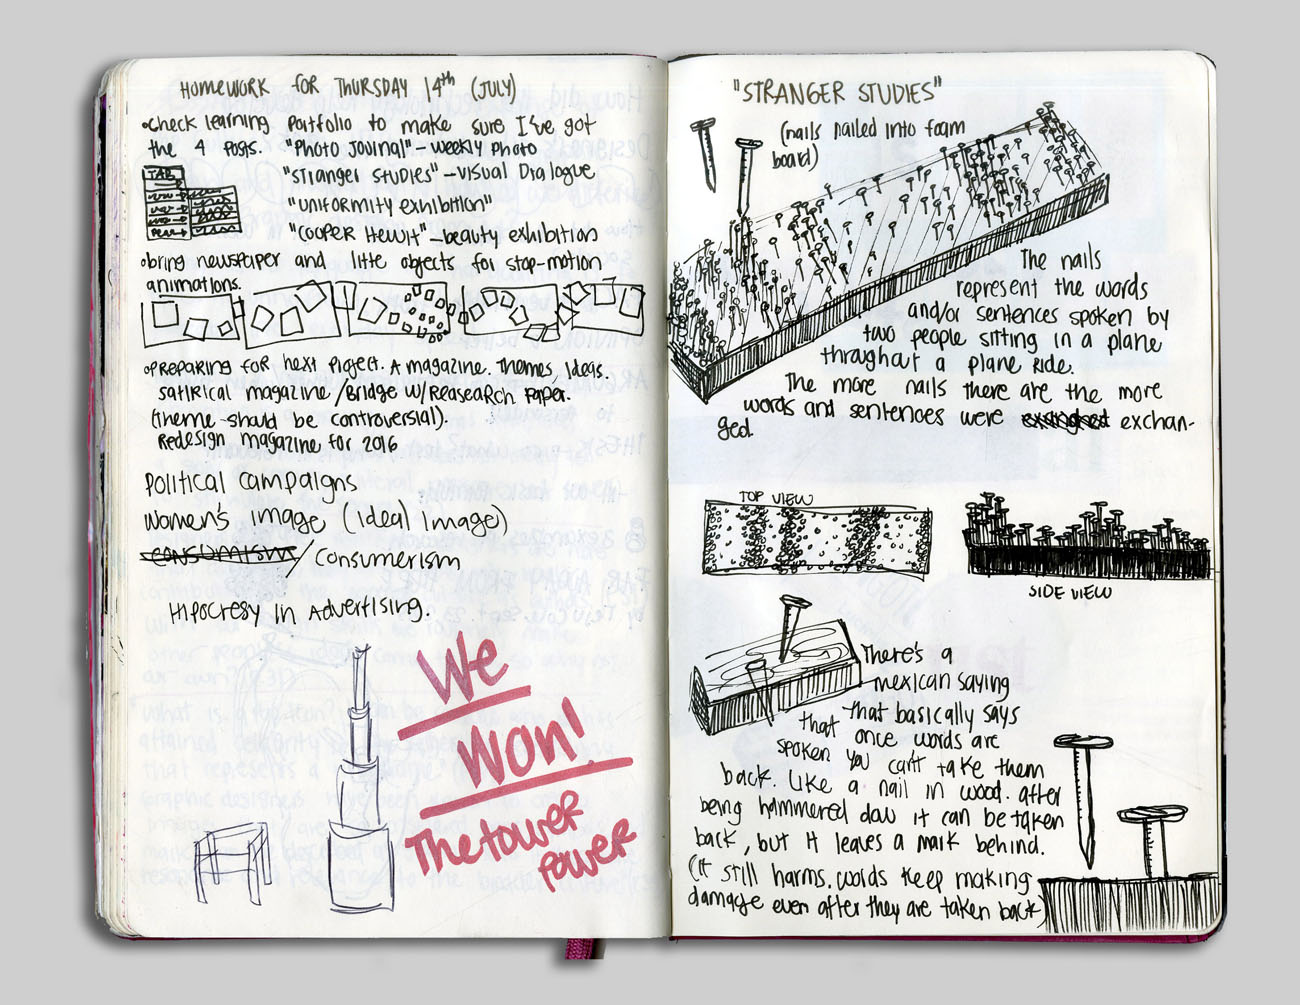 HOMEWORK FOR THURSDAY 14th (JULY)
•Check learning Portfolio to make sure I've got
the 4 Posts. "Photo Journal" - weekly Photo
TAB
"Stranger Studies" - Visual Dialogue
"Uniformity exhibition"
"Cooper Hewit" - beauty exhibition
•bring newspaper and little objects for stop-motion
animations.
•Preparing for next Project. A magazine. Themes, Ideas.
satirical magazine / Bridge w/ Reasearch Paper.
(theme should be controversial).
Redesign magazine for 2016
Political campaigns
Women's image (Ideal Image)
Consumism / Consumerism
Hipocresy in Advertising.
We
Won!
The tower
Power
"STRANGER STUDIES"
(nails nailed into foam
board)
The nails
represent the words
and/or sentences spoken by
two people sitting in a plane
throughout a plane ride.
The more nails there are the more
words and sentences were exchan-
ged.
TOP VIEW
SIDE VIEW
There's a
mexican saying
that basically says
that once words are
spoken you can't take them
back. Like a nail in wood. after
being hammered down it can be taken
back, but it leaves a mark behind.
(it still harms. words keep making
damage even after they are taken back)